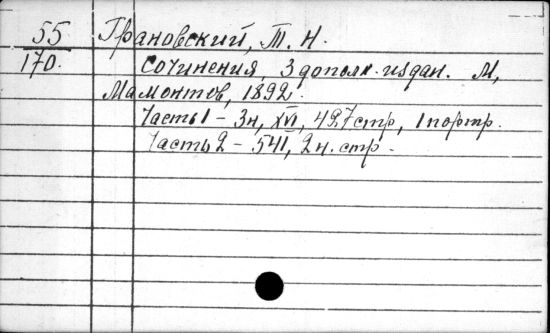 55
170.
Грановский, Т. Н.
Сочинения, 3 дополн. издан. М,
Мамонтов, 1892.
Часть 1 - 3н, XVI, 497 стр, 1 портр.
Часть 2 - 541, 2 н. стр.